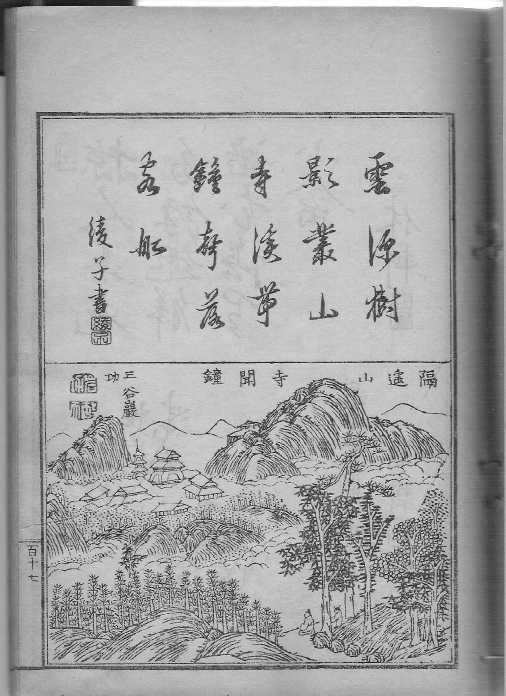 雲深樹
影叢山
寺溪帶
鐘聲落
客船
綾子書
隔遙山寺聞鐘
三谷巖
功
百十七